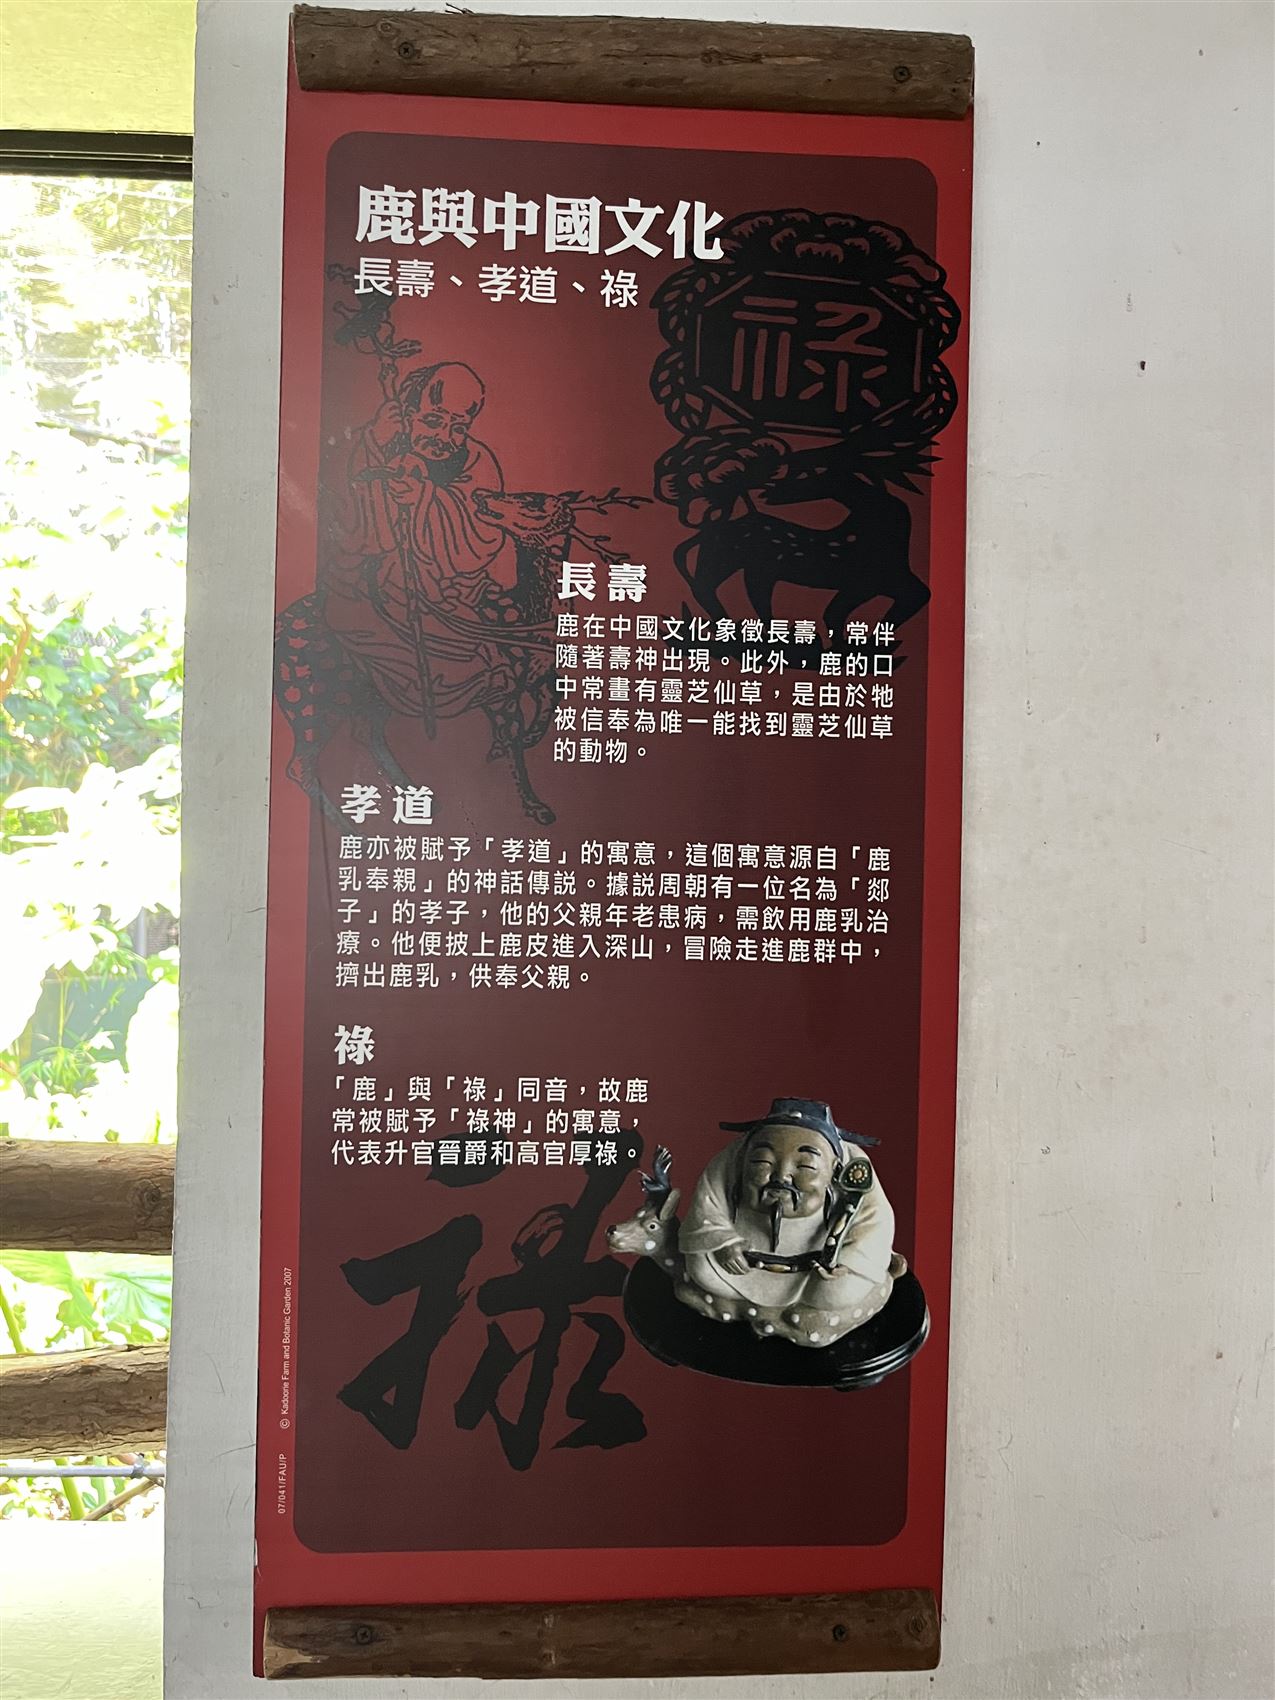 鹿與中國文化
長壽、孝道、祿
祿
長壽
鹿在中國文化象徵長壽，常伴
隨著壽神出現。此外，鹿的口
中常畫有靈芝仙草，是由於牠
被信奉為唯一能找到靈芝仙草
的動物。
孝道
鹿亦被賦予「孝道」的寓意，這個寓意源自「鹿
乳奉親」的神話傳說。據說周朝有一位名為「郯
子」的孝子，他的父親年老患病，需飲用鹿乳治
療。他便披上鹿皮進入深山，冒險走進鹿群中，
擠出鹿乳，供奉父親。
祿
「鹿」與「祿」同音，故鹿
常被賦予「祿神」的寓意，
代表升官晉爵和高官厚祿。
祿
07/041/FAU/P © Kadoorie Farm and Botanic Garden 2007